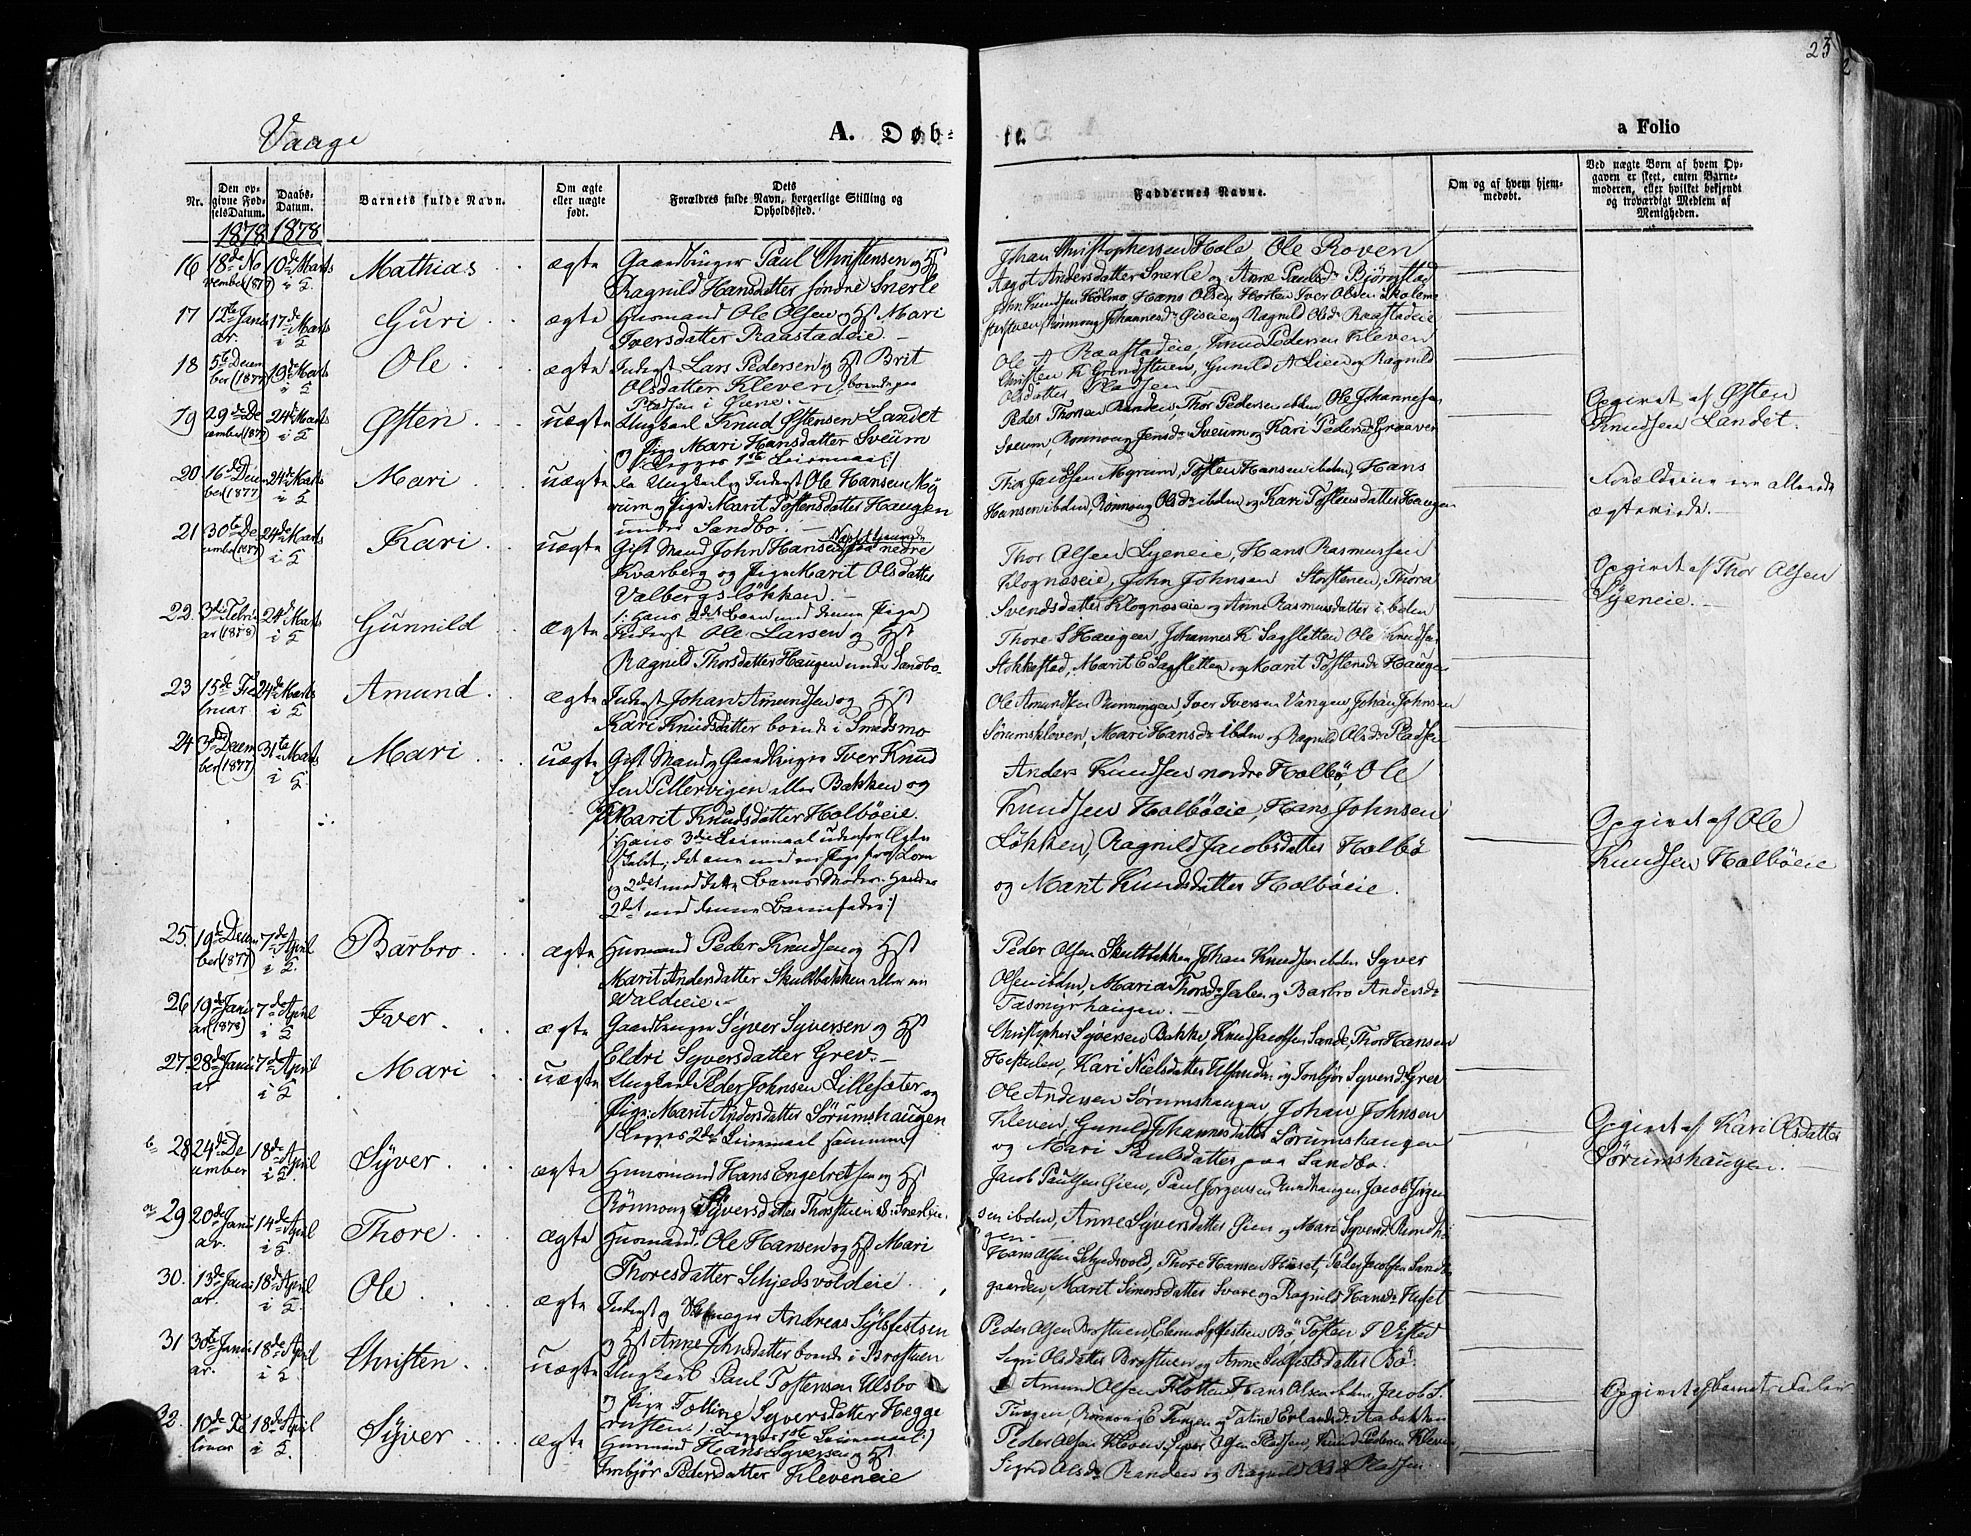 23
Vaage
A. Døb-
te.
a Folio
Nr.
Den op-
givne Fød-
selsDatum.
Daabs-
Datum.
Barnets fulde Navn.
Om ægte
eller uægte
født.
Dets
Forældres fulde Navn, borgerlige Stilling og
Opholdssted.
Faddernes Navne.
Om og af hvem hjem-
medøbt.
Ved uægte Børn af hvem Op-
gaven er skeet, enten Barne-
moderen, eller hvilket bekjendt
og troværdigt Medlem af
Menigheden.
1878 1878
16 18de No 10de Marts Mathias ægte Gaardbruger Paul Christensen og Hst
vember (1877) i K
Ragnild Hansdatter søndre Snerle
Johan Christophersen Hole Ole Roven
Aagot Andersdatter Snerle og Anne Paulsdr Bjørgstad
17 12te Janu 17de Marts Guri ægte Husmand Ole Olsen og Hst Mari
ar. i K
Iversdatter Raastadeie.
John Knudsen Holmo Hans Olsen Horten Iver Olsen Skoleme
Rønnoug Johannesdr Øieeie og Ragnild Olsdr Raastadeie
18 5te Decem 19de Marts Ole ægte Inderst Lars Pedersen og Hst Brit
ber (1877) i K
Olsdatter Kleven boende paa
Pladsen i Øvre.
Ole A Raastadeie, Knud Pedersen Kleven
Christen K Grindstuen, Gunild A Lien og Ragnild
Olsdatter Pladsen
19 29de De 24de Marts Østen uægte Ungkarl Knud Østensen Landet
cember (1877) i K
og Pige Mari Hansdatter Sveum
/: Begges 1ste Leiermaal :/
Peder Thorsen Randen Thor Pedersen ibdm Ole Johannesen
Sveum, Rønnoug Jensdr Sveum og Kari Pedersdr Graaver
Opgivet af Østen
Knudsen Landet.
20 16de Decem 24de Marts Mari uægte Ungkarl og Inderst Ole Hansen Myr
ber (1877) i K
rum og Pige Marit Tostensdatter Haugen
under Sandbo.
Thor Jacobsen Myrum, Tosten Hansen ibdm, Hans
Hansen ibdm, Rønnoug Olsdr ibdm og Kari Tostensdatter Haugen
Forældrene ere allerede
ægteviede.
21 30te De 24de Marts Kari uægte Gift Mand John Hansen paa nedre
cember (1877) i K
Kvarberg og Pige Marit Olsdatter
Valbergsløkken.
/: Hans 2det Barn med denne Pige
Thor Olsen Lyeneie, Hans Rasmussen
Klognæseie, John Johnsen Storstenen, Thora
Svendsdatter Klognæseie og Anne Rasmusdatter ibdm
Opgivet af Thor Olsen
Lyeneie.
22. 3die Febru 24de Marts Gunnild ægte Inderst Ole Larsen og Hst
ar (1878) i K
Ragnild Thorsdatter Haugen under Sandbo.
Thore S Haugen, Johannes K Sagfletten Ole Knudsen
Stokkestad, Marit E Sagfletten og Marit Tostensdr Haugen
23 15de Fe 24de Marts Amund ægte Inderst Johan Amundsen og Hst
bruar i K
Kari Knudsdatter boende i Smedsmo
Ole Amundsen Runningen, Iver Iversen Vangen, Johan Johnsen
Sørumskleven, Mari Hansdr ibdm og Ragnild Olsdr Pladsen
24 3die Decem 31te Marts Mari uægte Gift Mand og Gaardbruger Iver Knud
ber (1877) i K
sen Tillervigen eller Bakken og
Pige Marit Knudsdatter Holbøeie.
/: Hans 3die Leiermaal udenfor Ægte
skabet; det ene med en Pige fra Lom
og 2det med dette Barns Moder. Hendes
2det med denne Barnefader :/
Anders Knudsen nordre Holbø, Ole
Knudsen Holbøeie, Hans Johnsen
Løkken, Ragnild Jacobsdatter Holbø
og Marit Knudsdatter Holbøeie.
Opgivet af Ole
Knudsen Holbøeie
25. 19de Decem 7de April Barbro ægte Husmand Peder Knudsen og Hst
ber (1877) i K
Marit Andersdatter Skultbakken eller en
Valdeeie.
Peder Olsen Skultbakken Johan Knudsen ibdm Syver
Olsen ibdm, Maria Thorsdr Jalen og Barbro Andersdr
Tasmyrhaugen.
26 19de Janu 7de April Iver ægte Gaardbruger Syver Syversen og Hst
ar (1878) i K
Eldri Syversdatter Grev.
Christopher Syversen Bakke, Knud Jacobsen Sande, Thor Hansen
Hestulen, Kari Nielsdatter Ulsanden og Imbjør Syversdr Grev
27 28de Janu 7de April Mari uægte Ungkarl Peder Johnsen Lillesæter og
ar i K
Pige Marit Andersdatter Sørumshaugen
/: Begges 2det Leiermaal sammen :/
Ole Andersen Sørumshaugen, Johan Johnsen
Kleven, Gunild Johannesdatter Sørumshaugen
og Mari Paulsdatter paa Sandbo.
Opgivet af Kari Olsdatter
Sørumshaugen.
b 28 24de De 18de April Syver ægte Husmand Hans Engebretsen og Hst
cember i K
Rønnoug Syversdatter Thorstuen S. Snerleie.
Jacob Paulsen Øien, Paul Jørgensen Rundhaugen Jacob Jørgen
sen ibdm, Anne Syversdatter Øien og Mari Syversdr Rundhau
gen
a 29 20de Janu 14de April Thore ægte Husmand Ole Hansen og Hst Mari
ar. i K
Thoresdatter Schjedsvoldeie
Hans Olsen Schjedsvold, Thore Hansen Huset, Peder Jacobsen Sandbo
gaarden, Marit Simensdatter Svare og Ragnild Hansdr Huset
30. 13de Janu 18de April Ole ægte Inderst og Andreas Sylfestsen
ar. i K
og Hst Anne Johnsdatter boende i Brostuen
Peder Olsen Brostuen, Sylfestsen Bø, Tosten I Visted
Sigri Olsdatter Brostuen og Anne Sylfestsdatter Bø.
31 30te Janu 18de April Christen uægte Ungkarl Paul Tostensen Ulsbo
ar. i K
og Pige Tolline Syversdatter Hegge
rusten /: Begges 1ste Leiermaal :/
Amund Olsen Flotten Hans Olsen ibdm, Jacob S.
Tungen, Rønnoug E Tungen og Tatine Erlandsdr Aabakken
Opgivet af Barnets Fader
32. 10de Fe 18de April Syver ægte Husmand Hans Syversen og Hst
bruar i K
Imbjør Pedersdatter Kleveneie
Peder Olsen Kleven, Syver Olsen Pladsen, Knud Pedersen Kleven,
Sigrid Olsdr Randen og Ragnild Olsdr Pladsen.